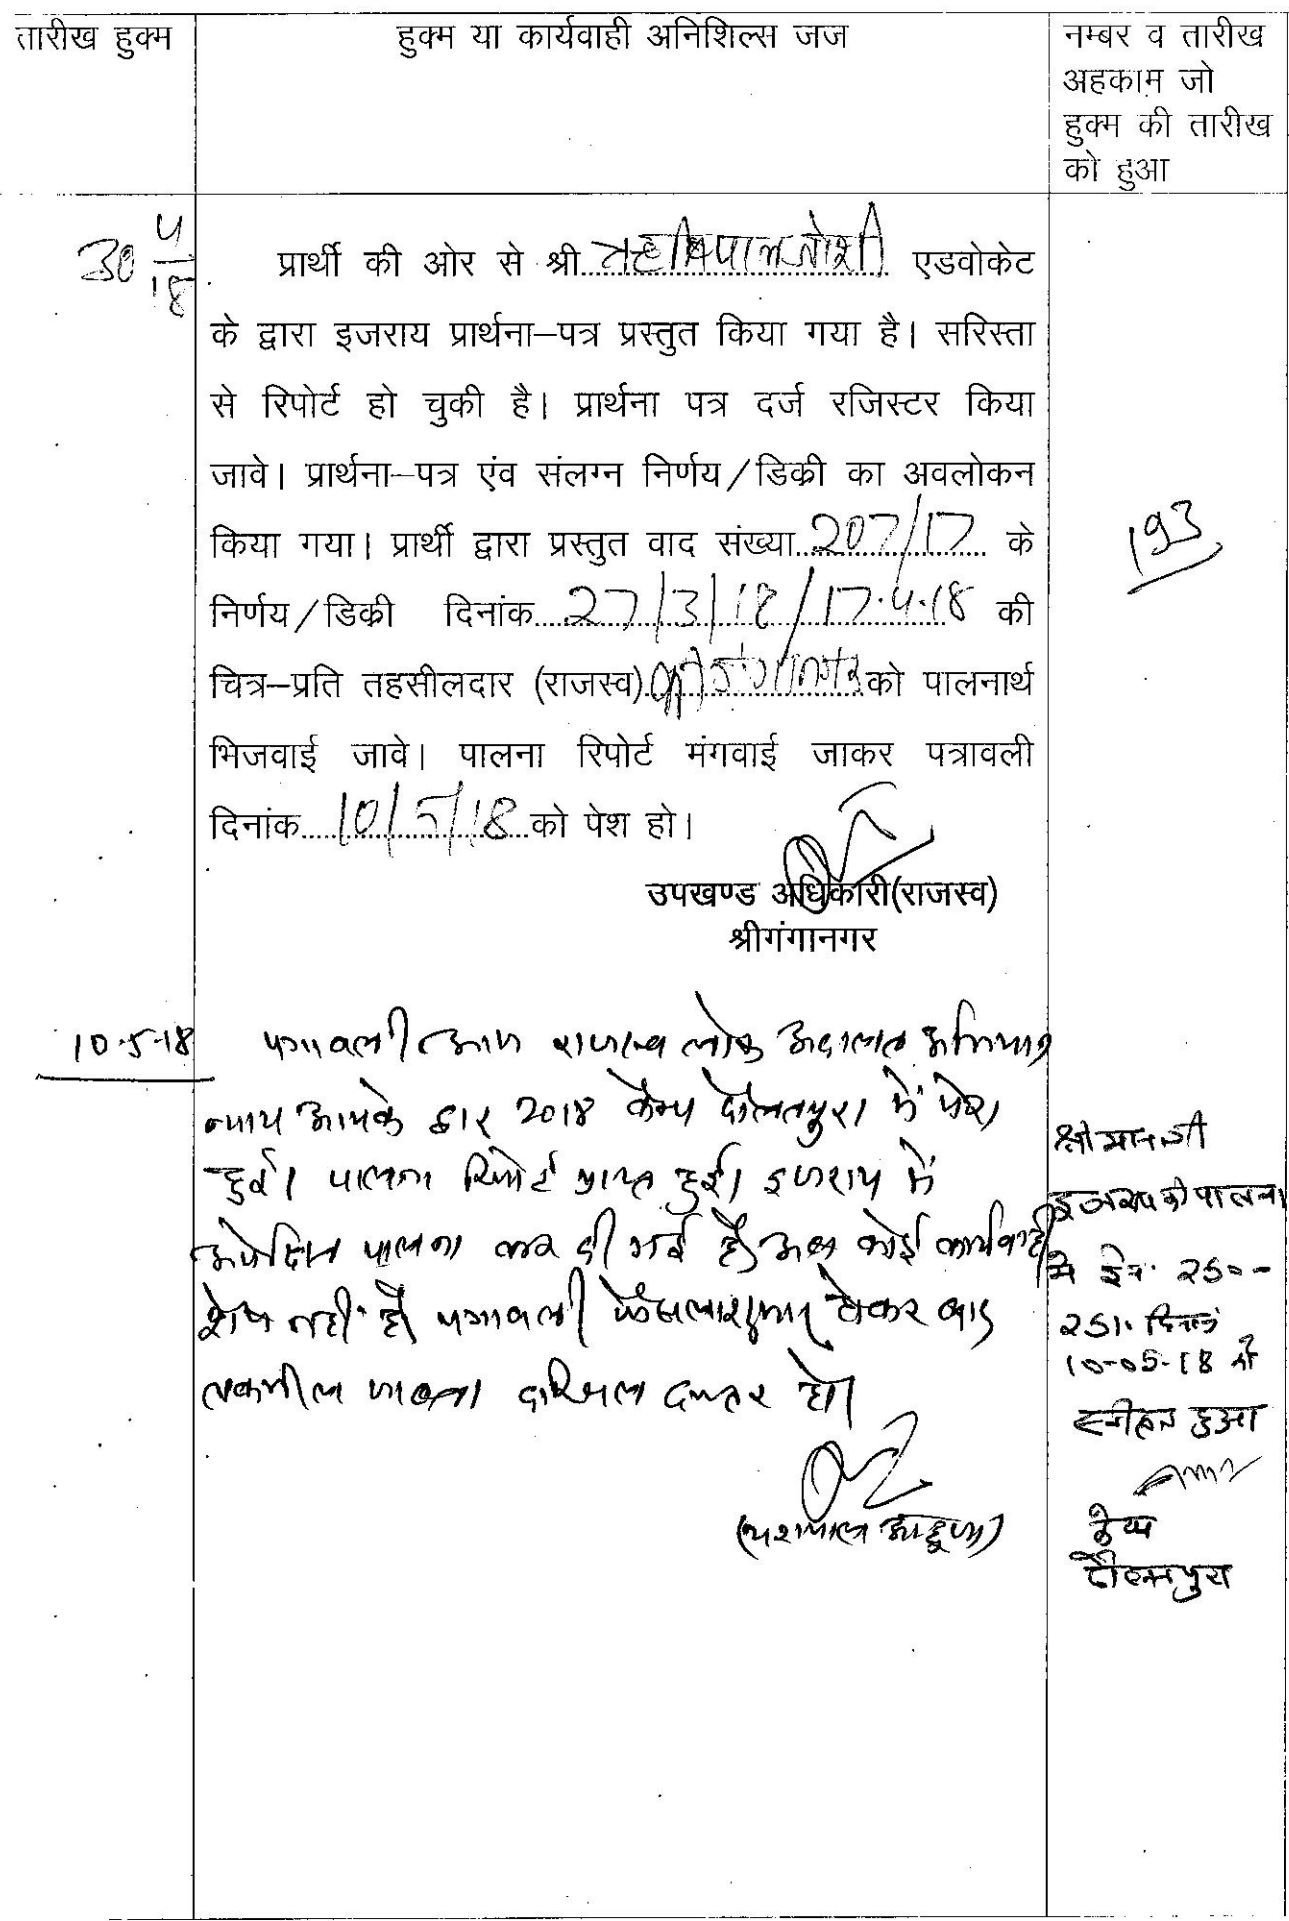 तारीख हुक्म
हुक्म या कार्यवाही अनिशिल्स जज
नम्बर व तारीख
अहकाम जो
हुक्म की तारीख
को हुआ
30 4/18
प्रार्थी की ओर से श्री एडवोकेट
के द्वारा इजराय प्रार्थना–पत्र प्रस्तुत किया गया है। सरिस्ता
से रिपोर्ट हो चुकी है। प्रार्थना पत्र दर्ज रजिस्टर किया
जावे। प्रार्थना–पत्र एंव संलग्न निर्णय/डिक्री का अवलोकन
किया गया। प्रार्थी द्वारा प्रस्तुत वाद संख्या 207/17 के
193
निर्णय/डिक्री दिनांक 27/3/18/17.4.18 की
चित्र–प्रति तहसीलदार (राजस्व) श्रीगंगानगर को पालनार्थ
भिजवाई जावे। पालना रिपोर्ट मंगवाई जाकर पत्रावली
दिनांक 10/5/18 को पेश हो।
उपखण्ड अधिकारी(राजस्व)
श्रीगंगानगर
10-5-18
पत्रावली आज राजस्व लोक अदालत अभियान
न्याय आपके द्वार 2018 केम्प दौलतपुरा में पेश
हुई। पालना रिपोर्ट प्राप्त हुई। इजराय में
अपेक्षित पालना कर दी गई है। अब कोई कार्यवाही
शेष नहीं है। पत्रावली फैसलाशुमार होकर बाद
तकमील जाब्ता दाखिल दफ्तर हो।
(यशपाल आहूजा)
श्रीमानजी
इजराय की पालना
मे इं. 250-
251. दिनांक
10-05-18 को
हुआ
केम्प
दौलतपुरा